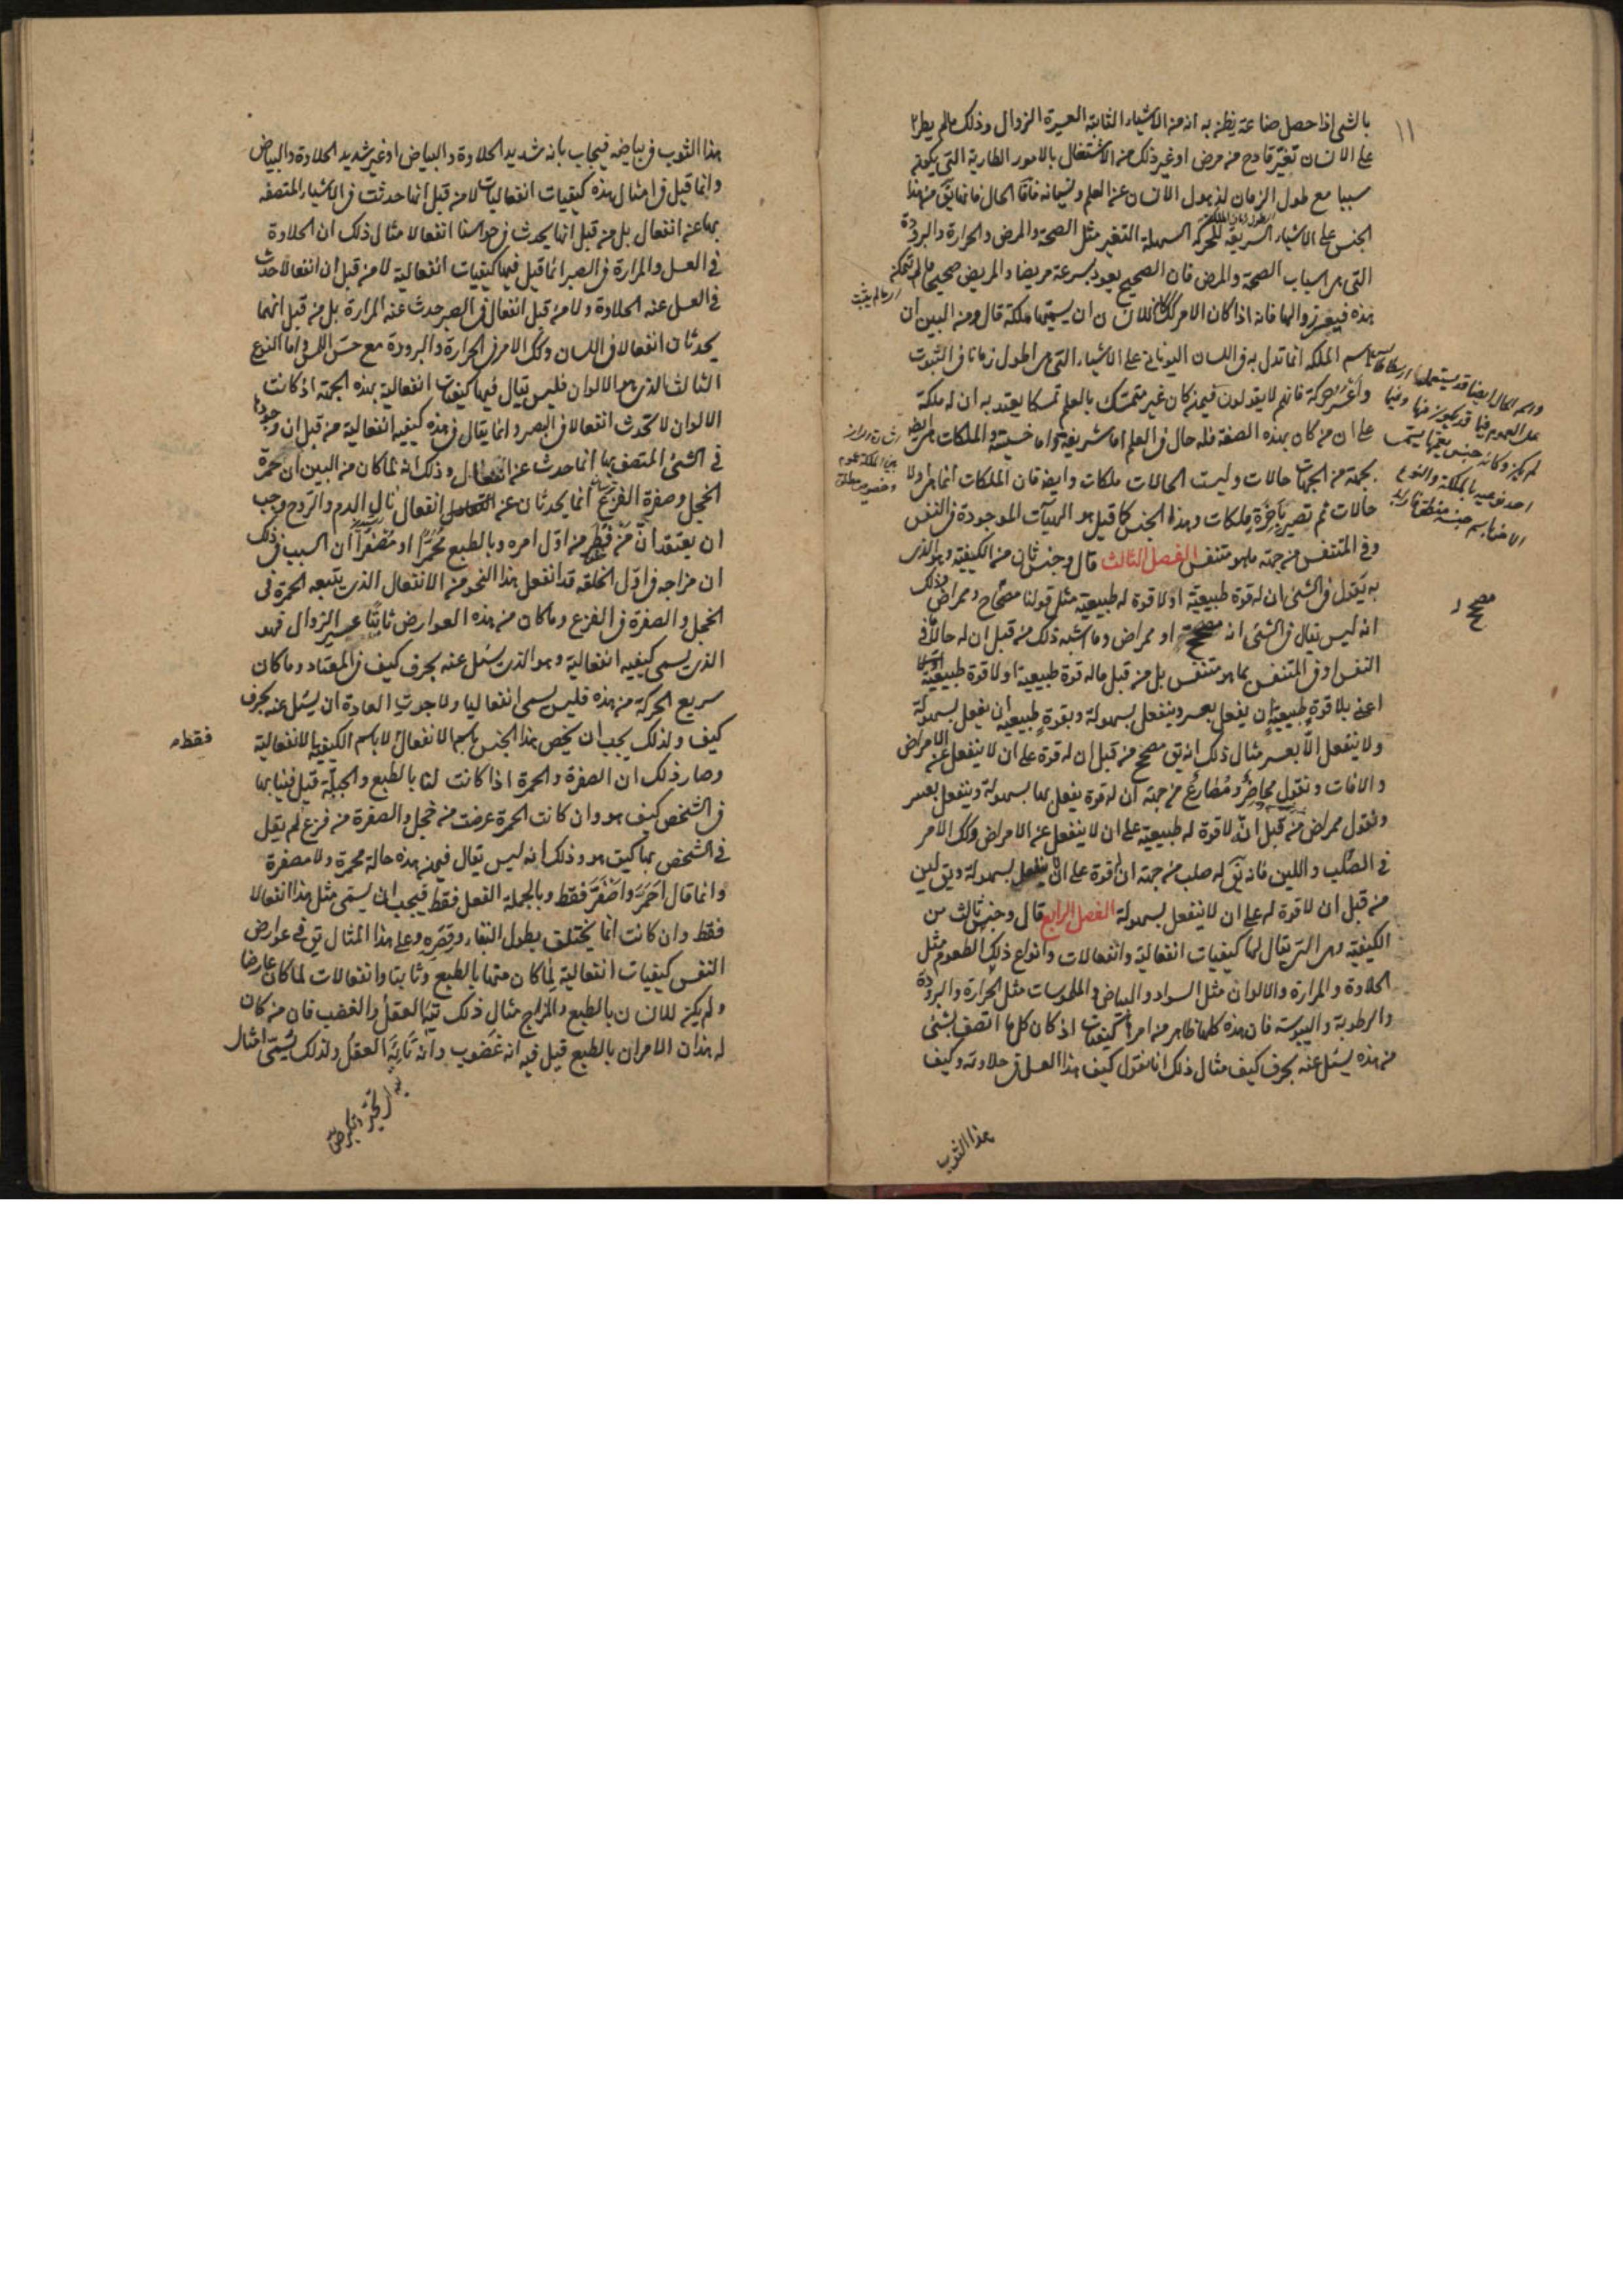 ١١
بالشئ اذا حصل صناعة يظن به انه من الاشياء الثابتة العسيرة الزوال وذلك مالم يطرا
على الانسان تغيّر قادح من مرض او غير ذلك من الاشتغال بالامور الطارية التى يكون
سببا مع طول الزمان لذهول الانسان عن العلم ونسيانه فاما الحال فانما تق من هذا
الجنس على الاشياء السريعة للحركة السهلة التغير مثل الصحة والمرض والحرارة والبرودة
التى هى اسباب الصحة والمرض فان الصحيح يعود بسرعة مريضا والمريض صحيحا مالم تتمكن
هذه فيعسر زوالها فانه اذا كان الامر كك كان للانسان ان يسميها ملكة قال ومن البين ان
اسم الملكه انما تدل به فى اللسان اليونانى على الاشياء التى هى اطول زمانا فى الثبوت
واعسر حركة فانهم لا يقولون فيمن كان غير متمسك بالعلم تمسكا يعتد به ان له ملكة
على ان من كان بهذه الصفة فله حال فى العلم اما شريفة واما خسيسة والملكات هى ايضا
بجهة من الجهات حالات وليست الحالات ملكات وايضا فان الملكات انما هى اولا
حالات ثم تصير باخرة ملكات وهذا الجنس كما قيل هو الهيآت الموجودة فى النفس
وفى المتنفس من جهة ما هو متنفس الفصل الثالث قال وجنس ثان من الكيفية وهو الذى
به يقول فى الشئ ان له قوة طبيعية او لا قوة له طبيعية مثل قولنا مصحاح وممراض وذلك
انه ليس يقال فى الشئ انه مصحح او ممراض وما اشبه ذلك من قبل ان له حالا فى
النفس او فى المتنفس بما هو متنفس بل من قبل ماله قوة طبيعية او لا قوة طبيعية
اعنى بلا قوة طبيعية ان يفعل بعسر وينفعل بسهولة وبقوة طبيعية ان يفعل بسهولة
ولا ينفعل الّا بعسر مثال ذلك انه يق مصحح من قبل ان له قوة على ان لا ينفعل عن الامراض
والافات ونقول محاضر ومصارع من جهة ان له قوة يفعل بها بسهولة وينفعل بعسر
ونقول ممراض من قبل انّه لا قوة له طبيعية على ان لا ينفعل عن الامراض وكك الامر
فى الصلب واللين فانه يق له صلب من جهة ان له قوة على ان لا ينفعل بسهولة ويق لين
من قبل ان لا قوة له على ان لا ينفعل بسهولة الفصل الرابع قال وجنس ثالث من
الكيفية وهى التى يقال لها كيفيات انفعالية وانفعالات وانواع ذلك الطعوم مثل
الحلاوة والمرارة والالوان مثل السواد والبياض والملموسات مثل الحرارة والبرودة
والرطوبة واليبوسة فان هذه كلها ظاهر من امرها انها كيفيات اذ كان كل ما اتصف بشئ
من هذه يسئل عنه بحرف كيف مثال ذلك انا نقول كيف هذا العسل فى حلاوته وكيف
هذا الثوب
مصحح
هذا الثوب فى بياضه فيجاب بانه شديد الحلاوة والبياض او غير شديد الحلاوة والبياض
وانما قيل فى امثال هذه كيفيات انفعاليات لا من قبل انها حدثت فى الاشياء المتصفه
بها عن انفعال بل من قبل انها يحدث فى حواسنا انفعالا مثال ذلك ان الحلاوة
فى العسل والمرارة فى الصبر انما قيل فيها كيفيات انفعالية لا من قبل ان انفعالا حدث
فى العسل عنه الحلاوة ولا من قبل انفعال فى الصبر حدث عنه المرارة بل من قبل انهما
يحدثان انفعالا فى اللسان وكك الامر فى الحرارة والبرودة مع حسّ اللمس واما النوع
الثالث الذى هو الالوان فليس يقال فيها كيفيات انفعالية بهذه الجهة اذ كانت
الالوان لا تحدث انفعالا فى البصر وانما يقال فى هذه كيفيه انفعالية من قبل ان وجودها
فى الشئ المتصف بها انما حدث عن انفعال وذلك انه لما كان من البين ان حمرة
الخجل وصفرة الفزع انما يحدثان عن انفعال نال الدم والروح وجب
ان يعتقد انّ من فطر من اوّل امره وبالطبع محمرّا او مصفرّا ان السبب فى ذلك
ان مزاجه فى اوّل الخلقه قد انفعل هذا النحو من الانفعال الذى يتبعه الحمرة فى
الخجل والصفرة فى الفزع وما كان من هذه العوارض ثابتا عسير الزوال فهو
الذى يسمى كيفيه انفعالية وهو الذى يسئل عنه بحرف كيف فى المعتاد وما كان
سريع الحركة من هذه فليس يسمى انفعاليا ولا جرت العادة ان يسئل عنه بحرف
كيف ولذلك يجب ان يخص هذا الجنس باسم الانفعال لا باسم الكيفية الانفعالية
وصار ذلك ان الصفرة والحمرة اذا كانت لنا بالطبع والجبلّة قيل فينا بها
فى الشخص كيف هو وان كانت الحمرة عرضت من خجل والصفرة من فزع لم يقل
فى الشخص بها كيف هو وذلك انه ليس يقال فيمن هذه حالة محمرة ولا مصفرة
وانما قال احمَرّ واصفَرّ فقط وبالجملة الفعل فقط فيجب ان يسمى مثل هذا انفعالا
فقط وان كانت انما يختلف بطول البقاء وقصره وعلى هذا المثال يق فى عوارض
النفس كيفيات انفعالية لما كان منها بالطبع وثابتا وانفعالات لما كان عارضا
ولم يكن للانسان بالطبع والمزاج مثال ذلك تيه العقل والغضب فان من كان
له هذان الامران بالطبع قيل فيه انه غضوب وانه تايه العقل ولذلك يسمى امثال
فقط